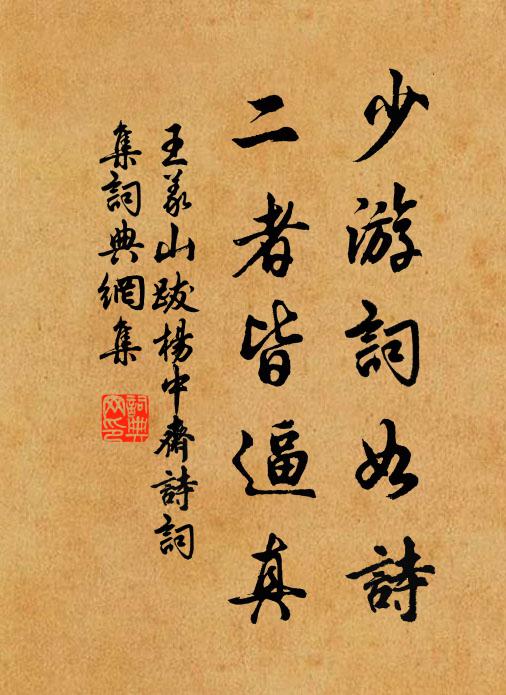 少游詞如詩
二者皆逼真
王義山跋楊中齋詩詞
集詞典網集
詞典網印